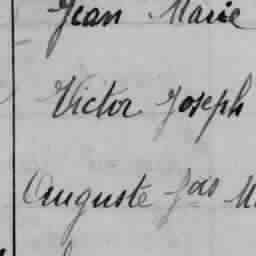 Jean Marie
Victor Joseph
Auguste Jos